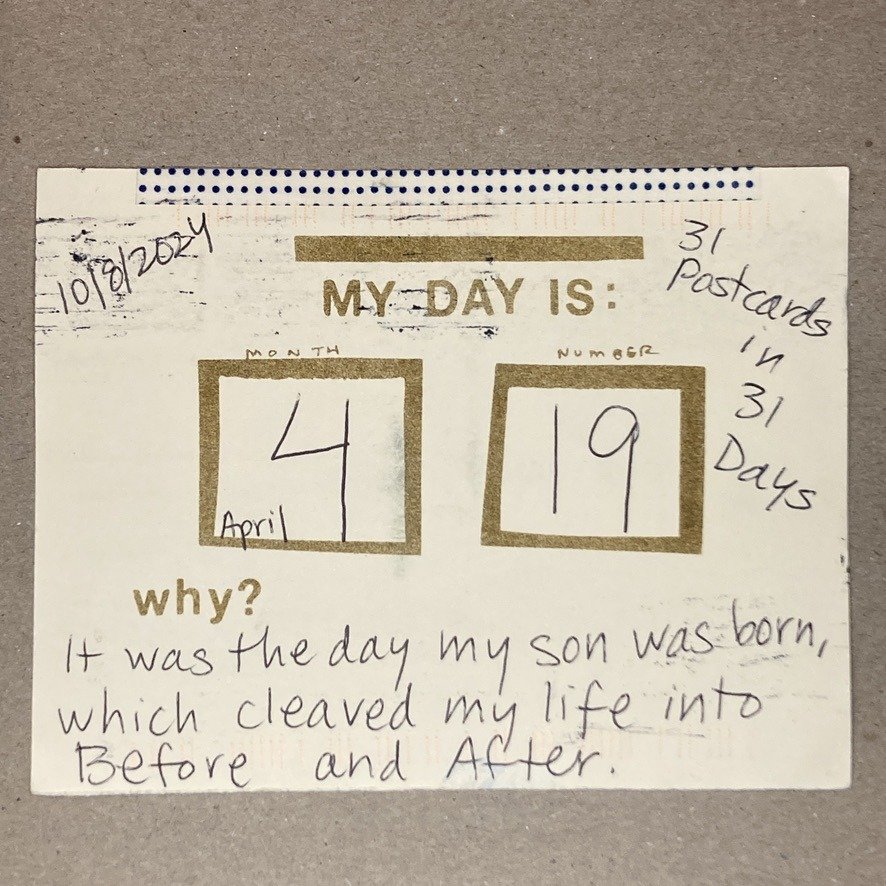 10/8/2024
MY DAY IS:
31
Postcards
in
31
Days
MONTH
NUMBER
4
April
19
why?
It was the day my son was born,
which cleaved my life into
Before and After.